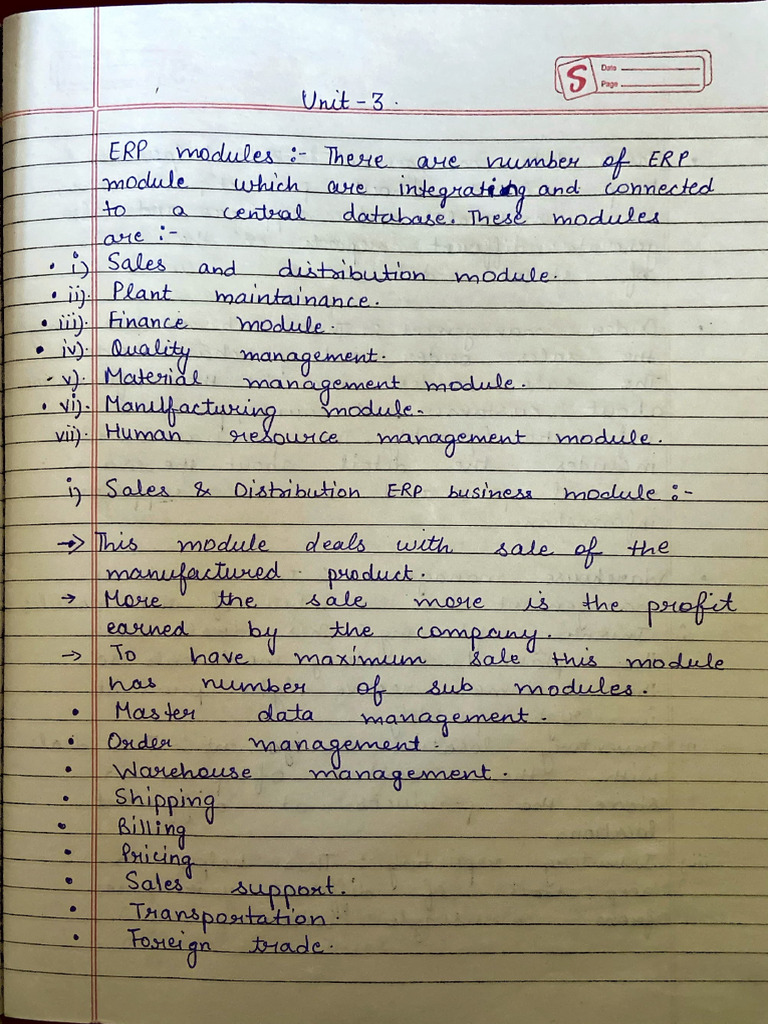 S
Date
Page
Unit - 3.
ERP modules :- There are number of ERP
module which are integrating and connected
to a central database. These modules
are :-
• i) Sales and distribution module.
• ii). Plant maintainance.
• iii). Finance module.
• iv). Quality management.
- v). Material management module.
• vi). Manufacturing module.
vii). Human resource management module.
i) Sales & Distribution ERP business module :-
→ This module deals with sale of the
manufactured product.
→ More the sale more is the profit
earned by the company.
→ To have maximum sale this module
has number of sub modules.
• Master data management.
• Order management.
• Warehouse management.
• Shipping
• Billing
• Pricing
• Sales support.
• Transportation.
• Foreign trade.